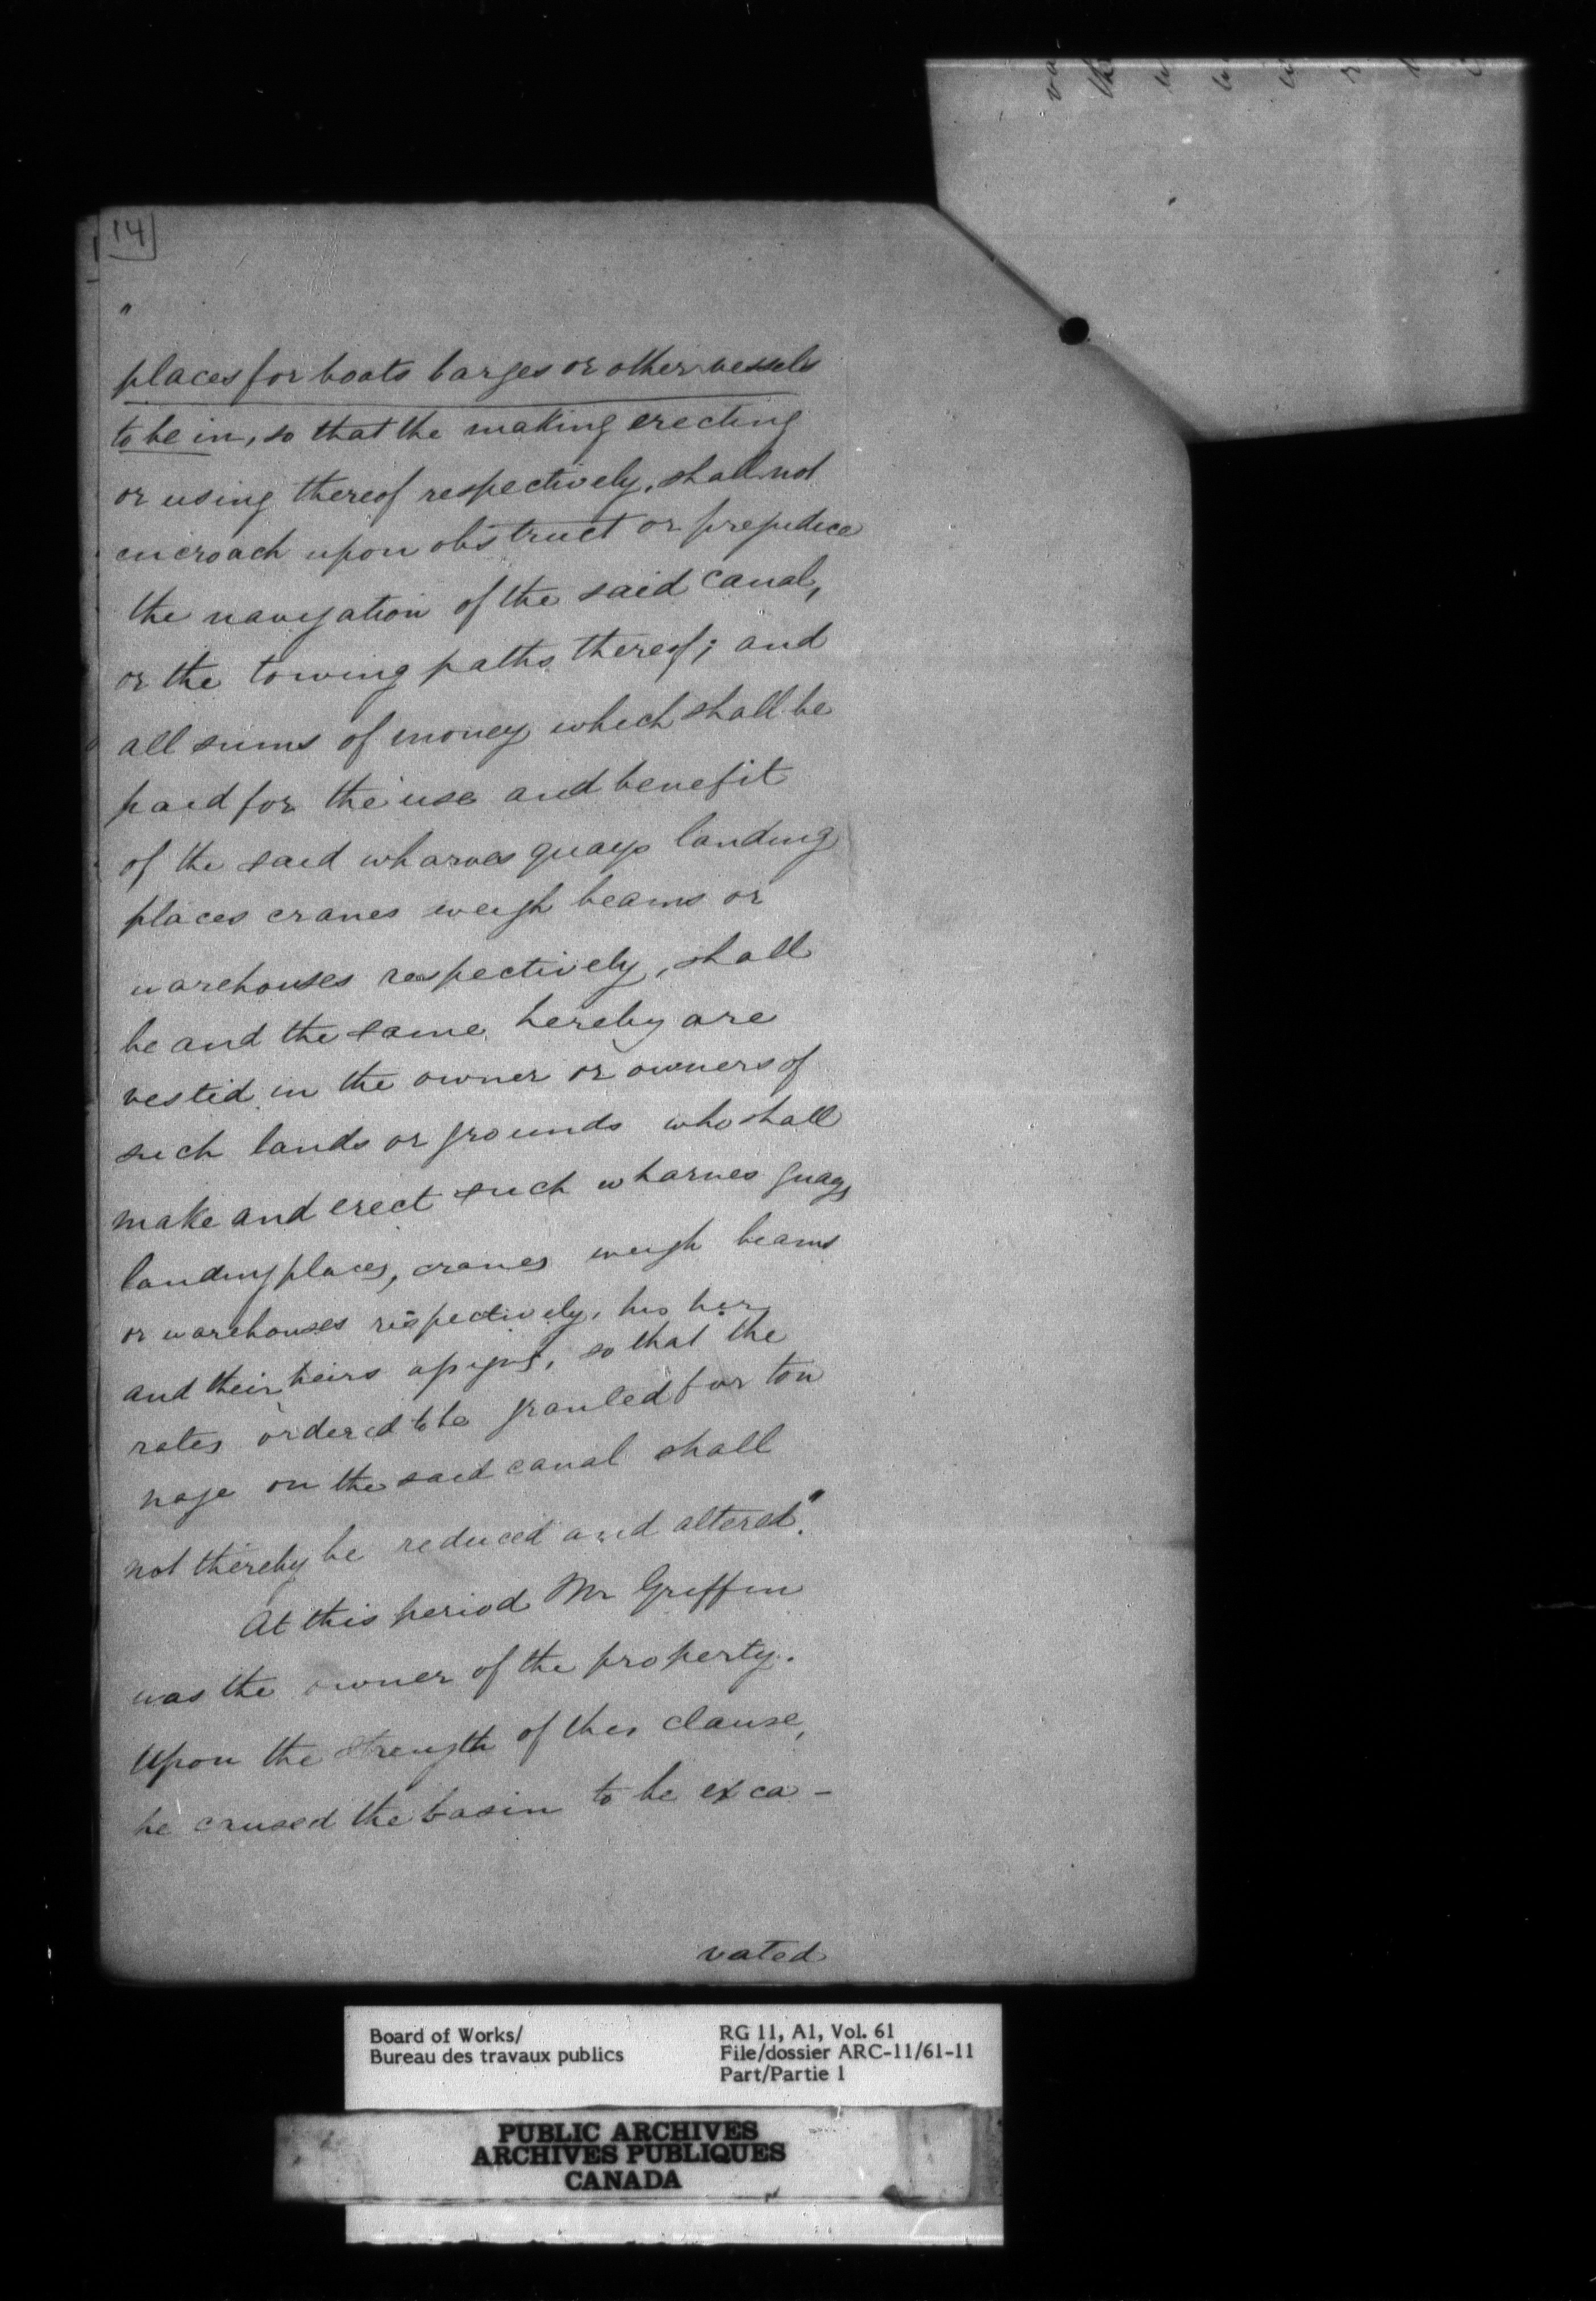 14
"
places for boats barges or other vessels
to be in, so that the making erecting
or using thereof respectively, shall not
encroach upon obstruct or prejudice
the navigation of the said canal,
or the towing paths thereof; and
all sums of money which shall be
paid for the use and benefit
of the said wharves quays landing
places cranes weigh beams or
warehouses respectively, shall
be and the same hereby are
vested in the owner or owners of
such lands or grounds who shall
make and erect such wharves quays
landing places, cranes weigh beams
or warehouses respectively, his her
and their heirs assigns, so that the
rates ordered to be granted for ton
nage on the said canal shall
not thereby be reduced and altered."
At this period Mr Griffin
was the owner of the property.
Upon the strength of this clause,
he caused the basin to be exca-
vated
Board of Works/
Bureau des travaux publics
RG 11, A1, Vol. 61
File/dossier ARC-11/61-11
Part/Partie 1
PUBLIC ARCHIVES
ARCHIVES PUBLIQUES
CANADA